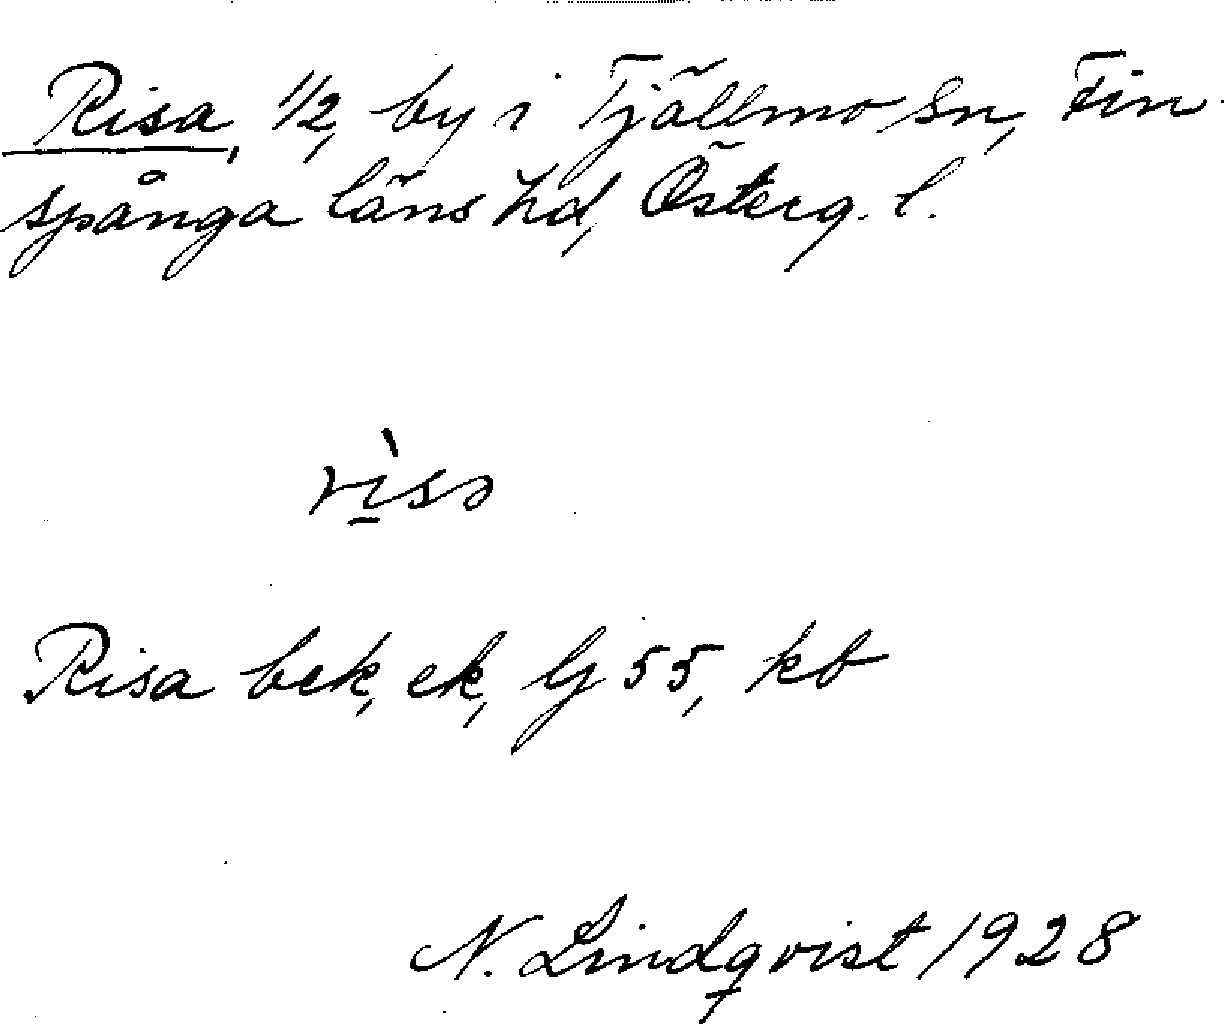 Risa, 1/2, by i Tjällmo Sn, Fin-
spånga läns hd, Österg. l.
rìsə
Risa bek, ek, Gj 55, kb
N. Lindqvist 1928